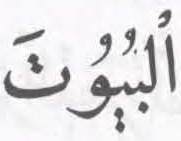 اَلْبُيُوتَ